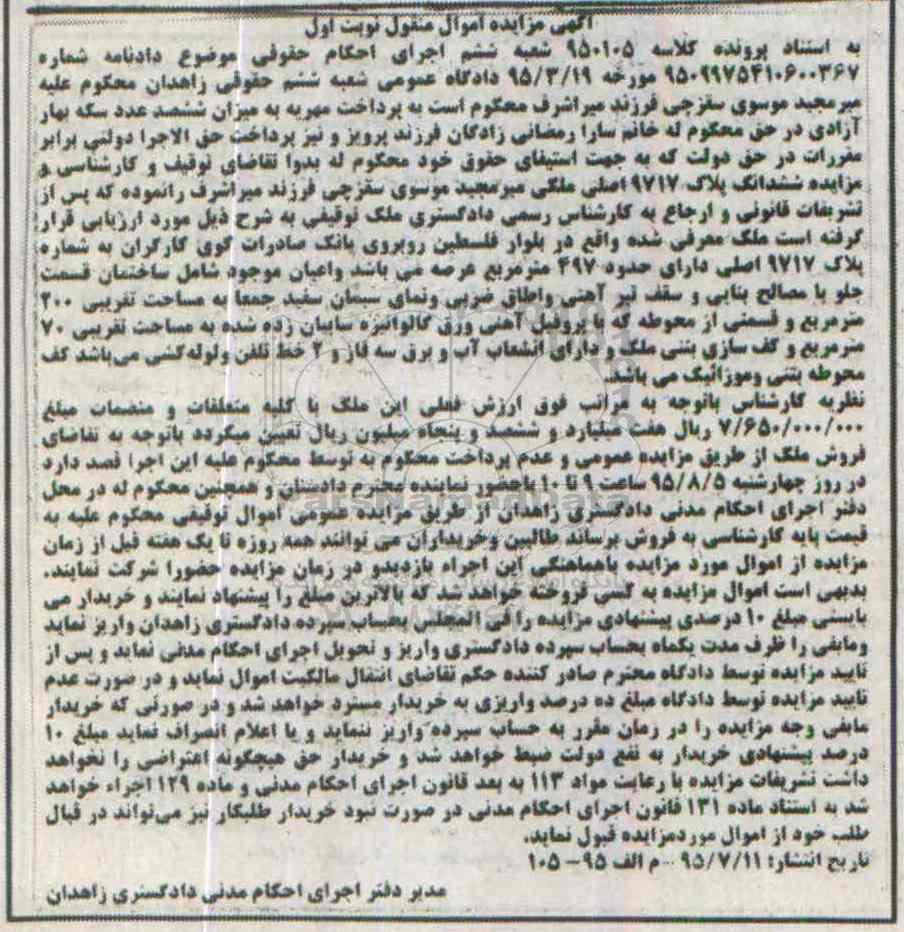 آگهی مزایده اموال منقول نوبت اول
به استناد پرونده کلاسه ۹۵۰۱۰۵ شعبه ششم اجرای احکام حقوقی موضوع دادنامه شماره
۹۵۰۹۹۷۵۴۱۰۶۰۰۳۶۷ مورخه ۹۵/۳/۱۹ دادگاه عمومی شعبه ششم حقوقی زاهدان محکوم علیه
میرمجید موسوی سقزچی فرزند میراشرف محکوم است به پرداخت مهریه به میزان ششصد عدد سکه بهار
آزادی در حق محکوم له خانم سارا رمضانی زادگان فرزند پرویز و نیز پرداخت حق الاجرا دولتی برابر
مقررات در حق دولت که به جهت استیفای حقوق خود محکوم له بدوا تقاضای توقیف و کارشناسی و
مزایده ششدانگ پلاک ۹۷۱۷ اصلی ملکی میرمجید موسوی سقزچی فرزند میراشرف رانموده که پس از
تشریفات قانونی و ارجاع به کارشناس رسمی دادگستری ملک توقیفی به شرح ذیل مورد ارزیابی قرار
گرفته است ملک معرفی شده واقع در بلوار فلسطین روبروی بانک صادرات کوی کارگران به شماره
پلاک ۹۷۱۷ اصلی دارای حدود ۴۹۷ مترمربع عرصه می باشد واعیان موجود شامل ساختمان قسمت
جلو با مصالح بنایی و سقف تیر آهنی واطاق ضربی ونمای سیمان سفید جمعا به مساحت تقریبی ۲۰۰
مترمربع و قسمتی از محوطه که با پروفیل آهنی ورق گالوانیزه سایبان زده شده به مساحت تقریبی ۷۰
مترمربع و کف سازی بتنی ملک و دارای انشعاب آب و برق سه فاز و ۲ خط تلفن ولوله کشی می باشد کف
محوطه بتنی وموزائیک می باشد.
نظریه کارشناس باتوجه به مراتب فوق ارزش فعلی این ملک با کلیه متعلقات و منضمات مبلغ
۷/۶۵۰/۰۰۰/۰۰۰ ریال هفت میلیارد و ششصد و پنجاه میلیون ریال تعیین میگردد باتوجه به تقاضای
فروش ملک از طریق مزایده عمومی و عدم پرداخت محکوم به توسط محکوم علیه این اجرا قصد دارد
در روز چهارشنبه ۹۵/۸/۵ ساعت ۹ تا ۱۰ باحضور نماینده محترم دادستان و همچنین محکوم له در محل
دفتر اجرای احکام مدنی دادگستری زاهدان از طریق مزایده عمومی اموال توقیفی محکوم علیه به
قیمت پایه کارشناسی به فروش برساند طالبین وخریداران می توانند همه روزه تا یک هفته قبل از زمان
مزایده از اموال مورد مزایده باهماهنگی این اجراء بازدیدو در زمان مزایده حضورا شرکت نمایند.
بدیهی است اموال مزایده به کسی فروخته خواهد شد که بالاترین مبلغ را پیشنهاد نمایند و خریدار می
بایستی مبلغ ۱۰ درصدی پیشنهادی مزایده را فی المجلس بحساب سپرده دادگستری زاهدان واریز نماید
ومابقی را ظرف مدت یکماه بحساب سپرده دادگستری واریز و تحویل اجرای احکام مدنی نماید و پس از
تایید مزایده توسط دادگاه محترم صادر کننده حکم تقاضای انتقال مالکیت اموال نماید و در صورت عدم
تایید مزایده توسط دادگاه مبلغ ده درصد واریزی به خریدار مسترد خواهد شد و در صورتی که خریدار
مابقی وجه مزایده را در زمان مقرر به حساب سپرده واریز ننماید و یا اعلام انصراف نماید مبلغ ۱۰
درصد پیشنهادی خریدار به نفع دولت ضبط خواهد شد و خریدار حق هیچگونه اعتراضی را نخواهد
داشت تشریفات مزایده با رعایت مواد ۱۱۳ به بعد قانون اجرای احکام مدنی و ماده ۱۲۹ اجراء خواهد
شد به استناد ماده ۱۳۱ قانون اجرای احکام مدنی در صورت نبود خریدار طلبکار نیز می تواند در قبال
طلب خود از اموال موردمزایده قبول نماید.
تاریخ انتشار: ۹۵/۷/۱۱ - م الف ۹۵ - ۱۰۵
مدیر دفتر اجرای احکام مدنی دادگستری زاهدان
ParsNamadData